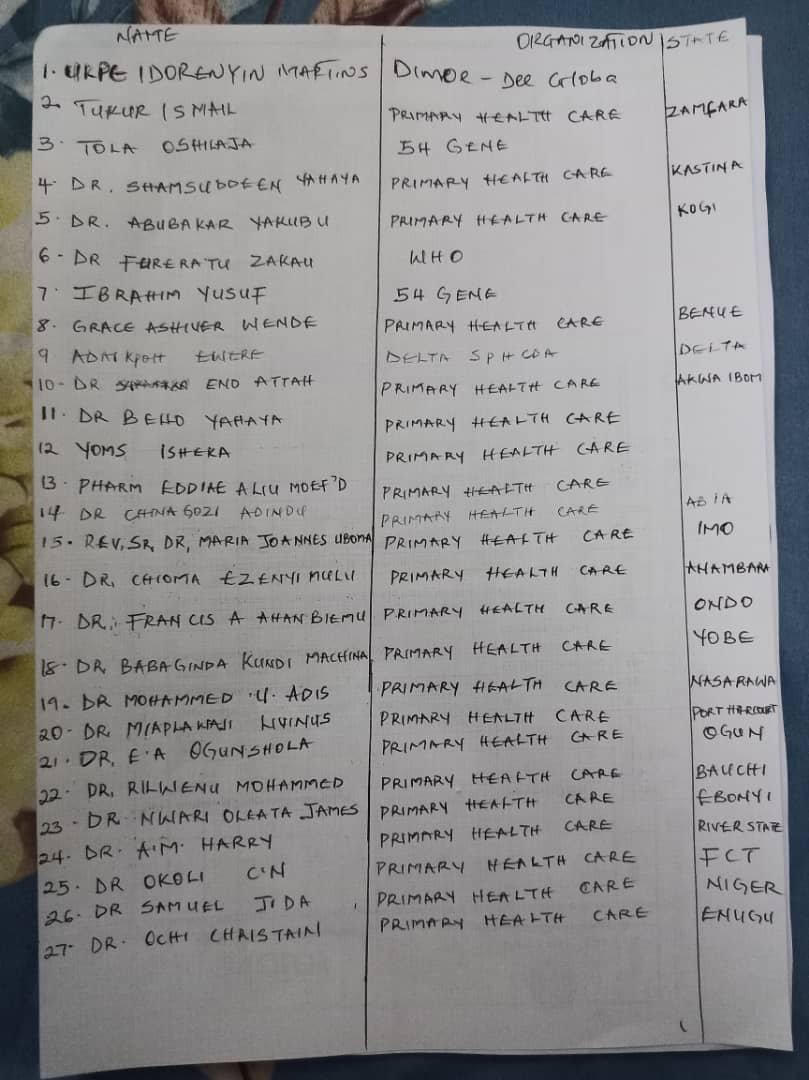 NAME ORGANIZATION STATE
1. UKPE IDORENYIN MARTINS Dimor - Dee Globa
2. TUKUR ISMAIL PRIMARY HEALTH CARE ZAMFARA
3. TOLA OSHILAJA 54 GENE
4. DR. SHAMSUDDEEN YAHAYA PRIMARY HEALTH CARE KASTINA
5. DR. ABUBAKAR YAKUBU PRIMARY HEALTH CARE KOGI
6 - DR FURERATU ZAKAU WHO
7. IBRAHIM YUSUF 54 GENE
8. GRACE ASHIVER WENDE PRIMARY HEALTH CARE BENUE
9 ADAIKPOH EWERE DELTA SPHCDA DELTA
10 - DR ENO ATTAH PRIMARY HEALTH CARE AKWA IBOM
11. DR BELLO YAHAYA PRIMARY HEALTH CARE
12 YOMS ISHEKA PRIMARY HEALTH CARE
13. PHARM EDDIAE ALIU MOEF'D PRIMARY HEALTH CARE
14 DR CHINAGOZI ADINDU PRIMARY HEALTH CARE ABIA
15. REV, SR, DR, MARIA JOANNES UBOMA PRIMARY HEALTH CARE IMO
16 - DR, CHIOMA EZENYIMULU PRIMARY HEALTH CARE ANAMBARA
17. DR. FRANCIS A AHANBIEMU PRIMARY HEALTH CARE ONDO
18. DR, BABAGINDA KUNDI MACHINA PRIMARY HEALTH CARE YOBE
19. DR MOHAMMED .U. ADIS PRIMARY HEALTH CARE NASARAWA
20. DR, MIAPLAWAJI LIVINUS PRIMARY HEALTH CARE PORT HARCOURT
21. DR, E.A OGUNSHOLA PRIMARY HEALTH CARE OGUN
22. DR, RILWENU MOHAMMED PRIMARY HEALTH CARE BAUCHI
23 - DR. NWARI OLEATA JAMES PRIMARY HEALTH CARE EBONYI
24. DR. A.M. HARRY PRIMARY HEALTH CARE RIVER STATE
25. DR OKOLI C.N PRIMARY HEALTH CARE FCT
26. DR SAMUEL JIDA PRIMARY HEALTH CARE NIGER
27 - DR. OCHI CHRISTAIN PRIMARY HEALTH CARE ENUGU